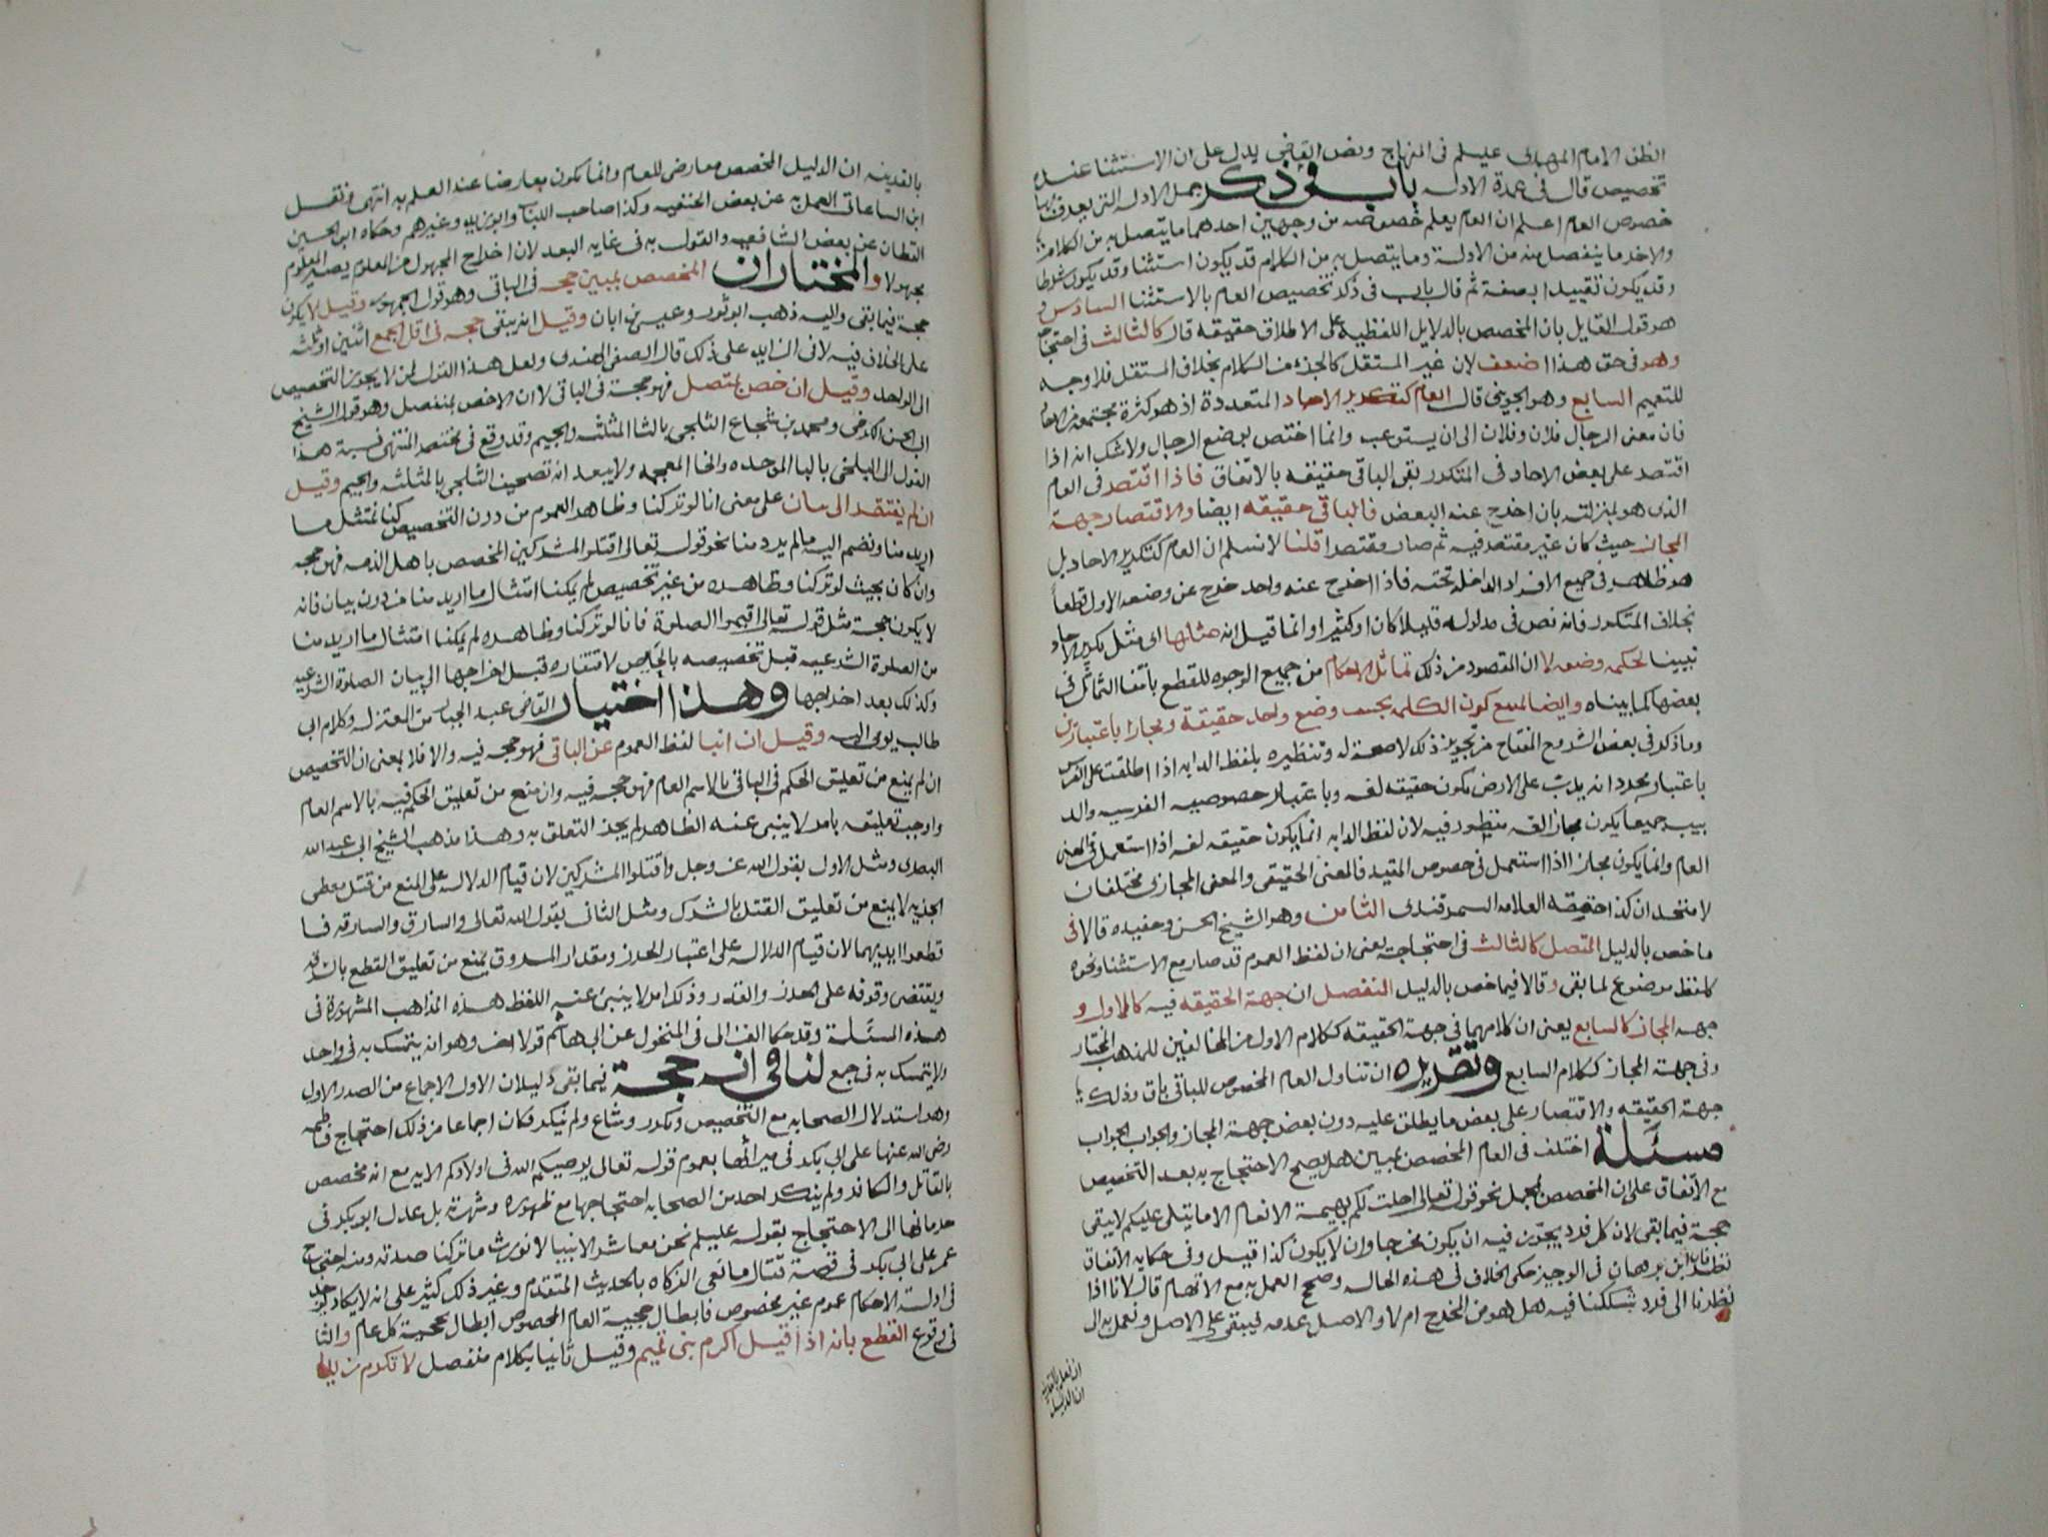 الظن الامام المهدى عيلم فى المنهاج ونص القاضى يدل على ان الاستثنا عنده
تخصيص قال فى عمدة الادله باب فى ذكر جمل الادله التى يعرف بها
خصوص العام اعلم ان العام يعلم خصوصه من وجهين احدهما ما يتصل به من الكلام
والاخر ما ينفصل منه من الادلة وما يتصل به من الكلام قد يكون استثنا وقد يكون شرطا
وقد يكون تقييدا بصفة ثم قال باب فى ذكر تخصيص العام بالاستثنا السادس و
هو قول القايل بان المخصص بالدلايل اللفظيه على الاطلاق حقيقه قال كالثالث فى احتجاجه
وهو فى حق هذا اضعف لان غير المستقل كالجزء من الكلام بخلاف المستقل فلا وجه
للتعميم السابع وهو الجوينى قال العام كتكرير الاحاد المتعددة اذ هو كثرة مجتمعه من الاحاد
فان معنى الرجال فلان وفلان الى ان يستوعب وانما اختص بوضع الرجال ولا شك انه اذا
اقتصر على بعض الاحاد فى المتكرر بقى الباقى حقيقه بالاتفاق فاذا اقتصر فى العام
الذى هو بمنزلته بان اخرج عنه البعض فالباقى حقيقه ايضا والاقتصار جهة
المجاز حيث كان غير مقتصر فيه ثم صار مقتصرا قلنا لا نسلم ان العام كتكرير الاحاد بل
هو ظاهر فى جميع الافراد الداخله تحته فاذا اخرج عنه واحد خرج عن وضعه الاول قطعا
بخلاف المتكرر فانه نص فى مدلوله قليلا كان او كثيرا وانما قيل انه مثلها اى مثل تكرير الاحاد
تبيينا لحكمه وضعه لا ان المقصود من ذلك تماثل الاحكام من جميع الوجوه للقطع بانتفا التماثل فى
بعضها كما بيناه وايضا لمنع كون الكلمه بحسب وضع واحد حقيقة ومجازا باعتبارين
وما ذكر فى بعض الشروح المفتاح من تجويز ذلك لا صحة له وتنظيره بلفظ الدابه اذا اطلقت على الفرس
باعتبار مجرد انه يدب على الارض يكون حقيقه لغه وباعتبار خصوصيه الفرسيه والد
بيب جميعا يكون مجاز الغه منظور فيه لان لفظ الدابه انما يكون حقيقه لغه اذا استعمل فى المعنى
العام وانما يكون مجازا اذا استعمل فى خصوص المقيد فالمعنى الحقيقى والمعنى المجازى مختلفان
لا متحدان كذا حققه العلامه السمرقندى الثامن وهو الشيخ الحسن وحفيده قالا فى
ما خص بالدليل المتصل كالثالث فى احتجاجه يعنى ان لفظ العموم قد صار مع الاستثنا ونحوه
كلفظ موضوع لما بقى وقالا فيما خص بالدليل المنفصل ان جهة الحقيقه فيه كالاول و
جهه المجاز كالسابع يعنى ان كلامهما فى جهة الحقيقه ككلام الاول من المخالفين للمذهب المختار
وفى جهة المجاز ككلام السابع وتقريره ان تناول العام المخصوص للباقى باق وذلك
جهة الحقيقه والاقتصار على بعض ما يطلق عليه دون بعض جهة المجاز والجواب الجواب
مسئلة اختلف فى العام المخصص بمبين هل يصح الاحتجاج به بعد التخصيص
مع الاتفاق على ان المخصص بمجمل نحو قوله تعالى احلت لكم بهيمة الانعام الا ما يتلى عليكم لا يبقى
حجة فيما بقى لان كل فرد يجوز فيه ان يكون مخرجا وان لا يكون كذا قيل وفى حكايه الاتفاق
نظر فان ابن برهان فى الوجيز حكى الخلاف فى هذه الحاله وصحح العمل به مع الابهام قال لانا اذا
نظرنا الى فرد شككنا فيه هل هو من المخرج ام لا والاصل عدمه فيبقى على الاصل ونعمل به الى
ان نعلم بالقرينه
ان الدليل
بالقرينه ان الدليل المخصص معارض للعام وانما يكون معارضا عند العلم به انتهى ونقل
ابن الساعاتى العمل به عن بعض الحنفيه وكذا صاحب اللباب وابو زيد وغيرهم وحكاه ابو الحسين
القطان عن بعض الشافعيه والقول به فى غايه البعد لان اخراج المجهول من المعلوم يصير المعلوم
مجهولا والمختار ان المخصص بمبين حجه فى الباقى وهو قول الجمهور وقيل لا يكون
حجة فيما بقى واليه ذهب ابو ثور وعيسى بن ابان وقيل انه يبقى حجه فى اقل الجمع اثنين او ثلثه
على الخلاف فيه لا فى الزايد على ذلك قال الصفى الهندى ولعل هذا القول لمن لا يجوز التخصيص
الى الواحد وقيل ان خص بمتصل فهو حجة فى الباقى لا ان الاخص بمنفصل وهو قول الشيخ
ابى الحسن الكرخى ومحمد بن شجاع الثلجى بالثا المثلثه والجيم وقد وقع فى مختصر المنتهى نسبة هذا
القول الى البلخى بالبا الموحده والخا المعجمه ولا يبعد انه تصحيف الثلجى بالمثلثه والجيم وقيل
ان لم يفتقر الى بيان على معنى انا لو تركنا وظاهر العموم من دون التخصيص كنا نمتثل ما
اريد منا ونضم اليه ما لم يرد منا نحو قوله تعالى اقتلوا المشركين المخصص باهل الذمه فهو حجه
وان كان بحيث لو تركنا وظاهره من غير تخصيص لم يمكنا امتثال ما اريد منا من دون بيان فانه
لا يكون حجة مثل قوله تعالى اقيموا الصلوة فانا لو تركنا وظاهره لم يمكنا امتثال ما اريد منا
من الصلوة الشرعيه قبل تخصيصه بالحايض لافتقاره قبل اخراجها الى بيان الصلوة الشرعيه
وكذلك بعد اخراجها وهذا اختيار القاضى عبد الجبار من المعتزله وكلام ابى
طالب يومى اليه وقيل ان انبا لفظ العموم عن الباقى فهو حجه فيه والا فلا بمعنى ان التخصيص
ان لم يمنع من تعليق الحكم فى الباقى بالاسم العام فهو حجه فيه وان منع من تعليق الحكم فيه بالاسم العام
واوجب تعليقه بامر لا ينبى عنه الظاهر لم يجز التعلق به وهذا مذهب الشيخ ابى عبد الله
البصرى ومثل الاول بقول الله عز وجل واقتلوا المشركين لان قيام الدلاله على المنع من قتل معطى
الجزيه لا يمنع من تعليق القتل بالشرك ومثل الثانى بقول الله تعالى والسارق والسارقه فا
قطعوا ايديهما لان قيام الدلاله على اعتبار الحرز ومقدار المسروق يمنع من تعليق القطع بالسرقه
ويقتضى وقوفه على الحرز والقدر وذلك امر لا ينبى عنه اللفظ هذه المذاهب المشهورة فى
هذه المسئلة وقد حكا الغزالى فى المنخول عن ابى هاشم قولا اخر وهو انه يتمسك به فى واحد
ولا يتمسك به فى جمع لنا فى انه حجة فيما بقى دليلان الاول الاجماع من الصدر الاول
وهو استدلال الصحابه مع التخصيص وتكرر وشاع ولم ينكر فكان اجماعا من ذلك احتجاج فاطمه
رضى الله عنها على ابى بكر فى ميراثها بعموم قوله تعالى يوصيكم الله فى اولادكم الايه مع انه مخصص
بالقاتل والكافر ولم ينكر احد من الصحابه احتجاجها مع ظهوره وشهرته بل عدل ابو بكر فى
حرمانها الى الاحتجاج بقوله عليلم نحن معاشر الانبيا لا نورث ما تركنا صدقه ومنه احتجاج
عمر على ابى بكر فى قصة قتال مانعى الزكاه بالحديث المتقدم وغير ذلك كثير على انه لا يكاد يوجد
فى ادلة الاحكام عموم غير مخصوص فابطال حجية العام المخصوص ابطال لحجية كل عام والثا
نى وقوع القطع بانه اذا قيل اكرم بنى تميم وقيل ثانيا بكلام منفصل لا تكرم زيدا